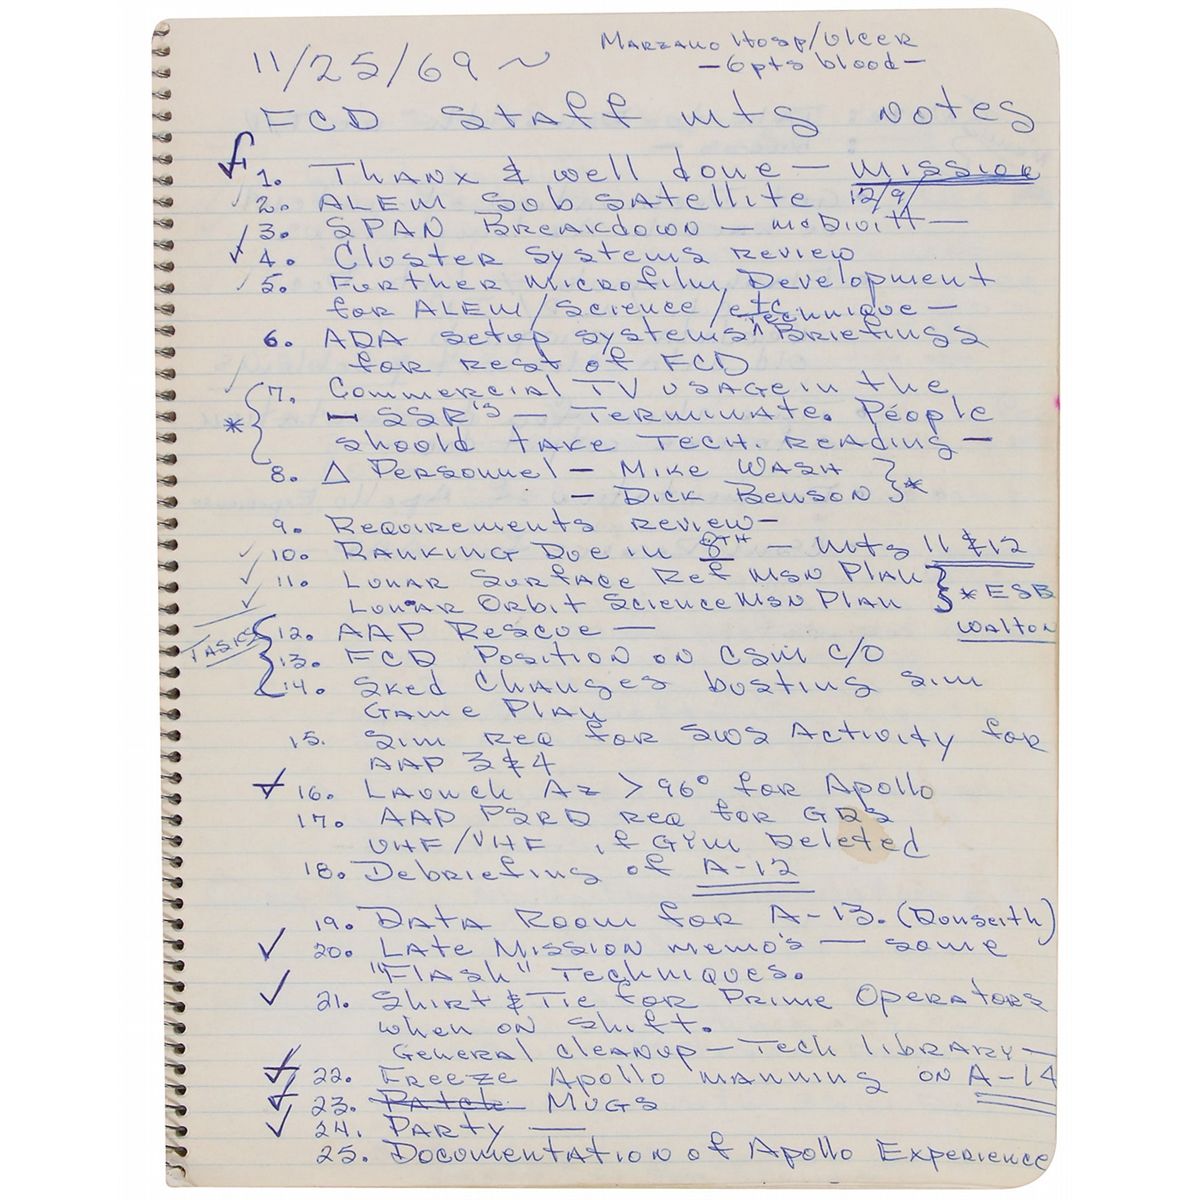 Marzano Hosp/Ulcer
— 6 pts blood —
11/25/69 ~
FCD Staff mtg Notes
1. Thanx & well done — Mission
2. ALEM Sub Satellite 12/9/
3. SPAN Breakdown — McDivitt —
4. Cluster Systems Review
5. Further Microfilm Development
for ALEM/Science/etc
technique —
6. ADA setup systems ^ Briefings
for rest of FCD
7. Commercial TV usage in the
* — SSR's — Terminate. People
should take Tech. reading —
8. Δ Personnel — Mike Wash
— Dick Benson } *
9. Requirements review —
10. Ranking Due in 8TH — Mtg 11 & 12
11. Lunar Surface Ref Msn Plan
Lunar Orbit Science Msn Plan } * ESB
Walton
Tasks
12. AAP Rescue —
13. FCD Position on CSM C/O
14. Sked Changes busting sim
Game Plan
15. Sim req for SWS Activity for
AAP 3 & 4
16. Launch Az > 96° for Apollo
17. AAP PSRD req for GDS
UHF/VHF if GYM Deleted
18. Debriefing of A-12
19. Data Room for A-13. (Donseith)
20. Late Mission memo's — some
"Flash" Techniques.
21. Shirt & Tie for Prime Operators
when on shift.
General cleanup — Tech library —
22. Freeze Apollo manning on A-14
23. Patch Mugs
24. Party —
25. Documentation of Apollo Experience